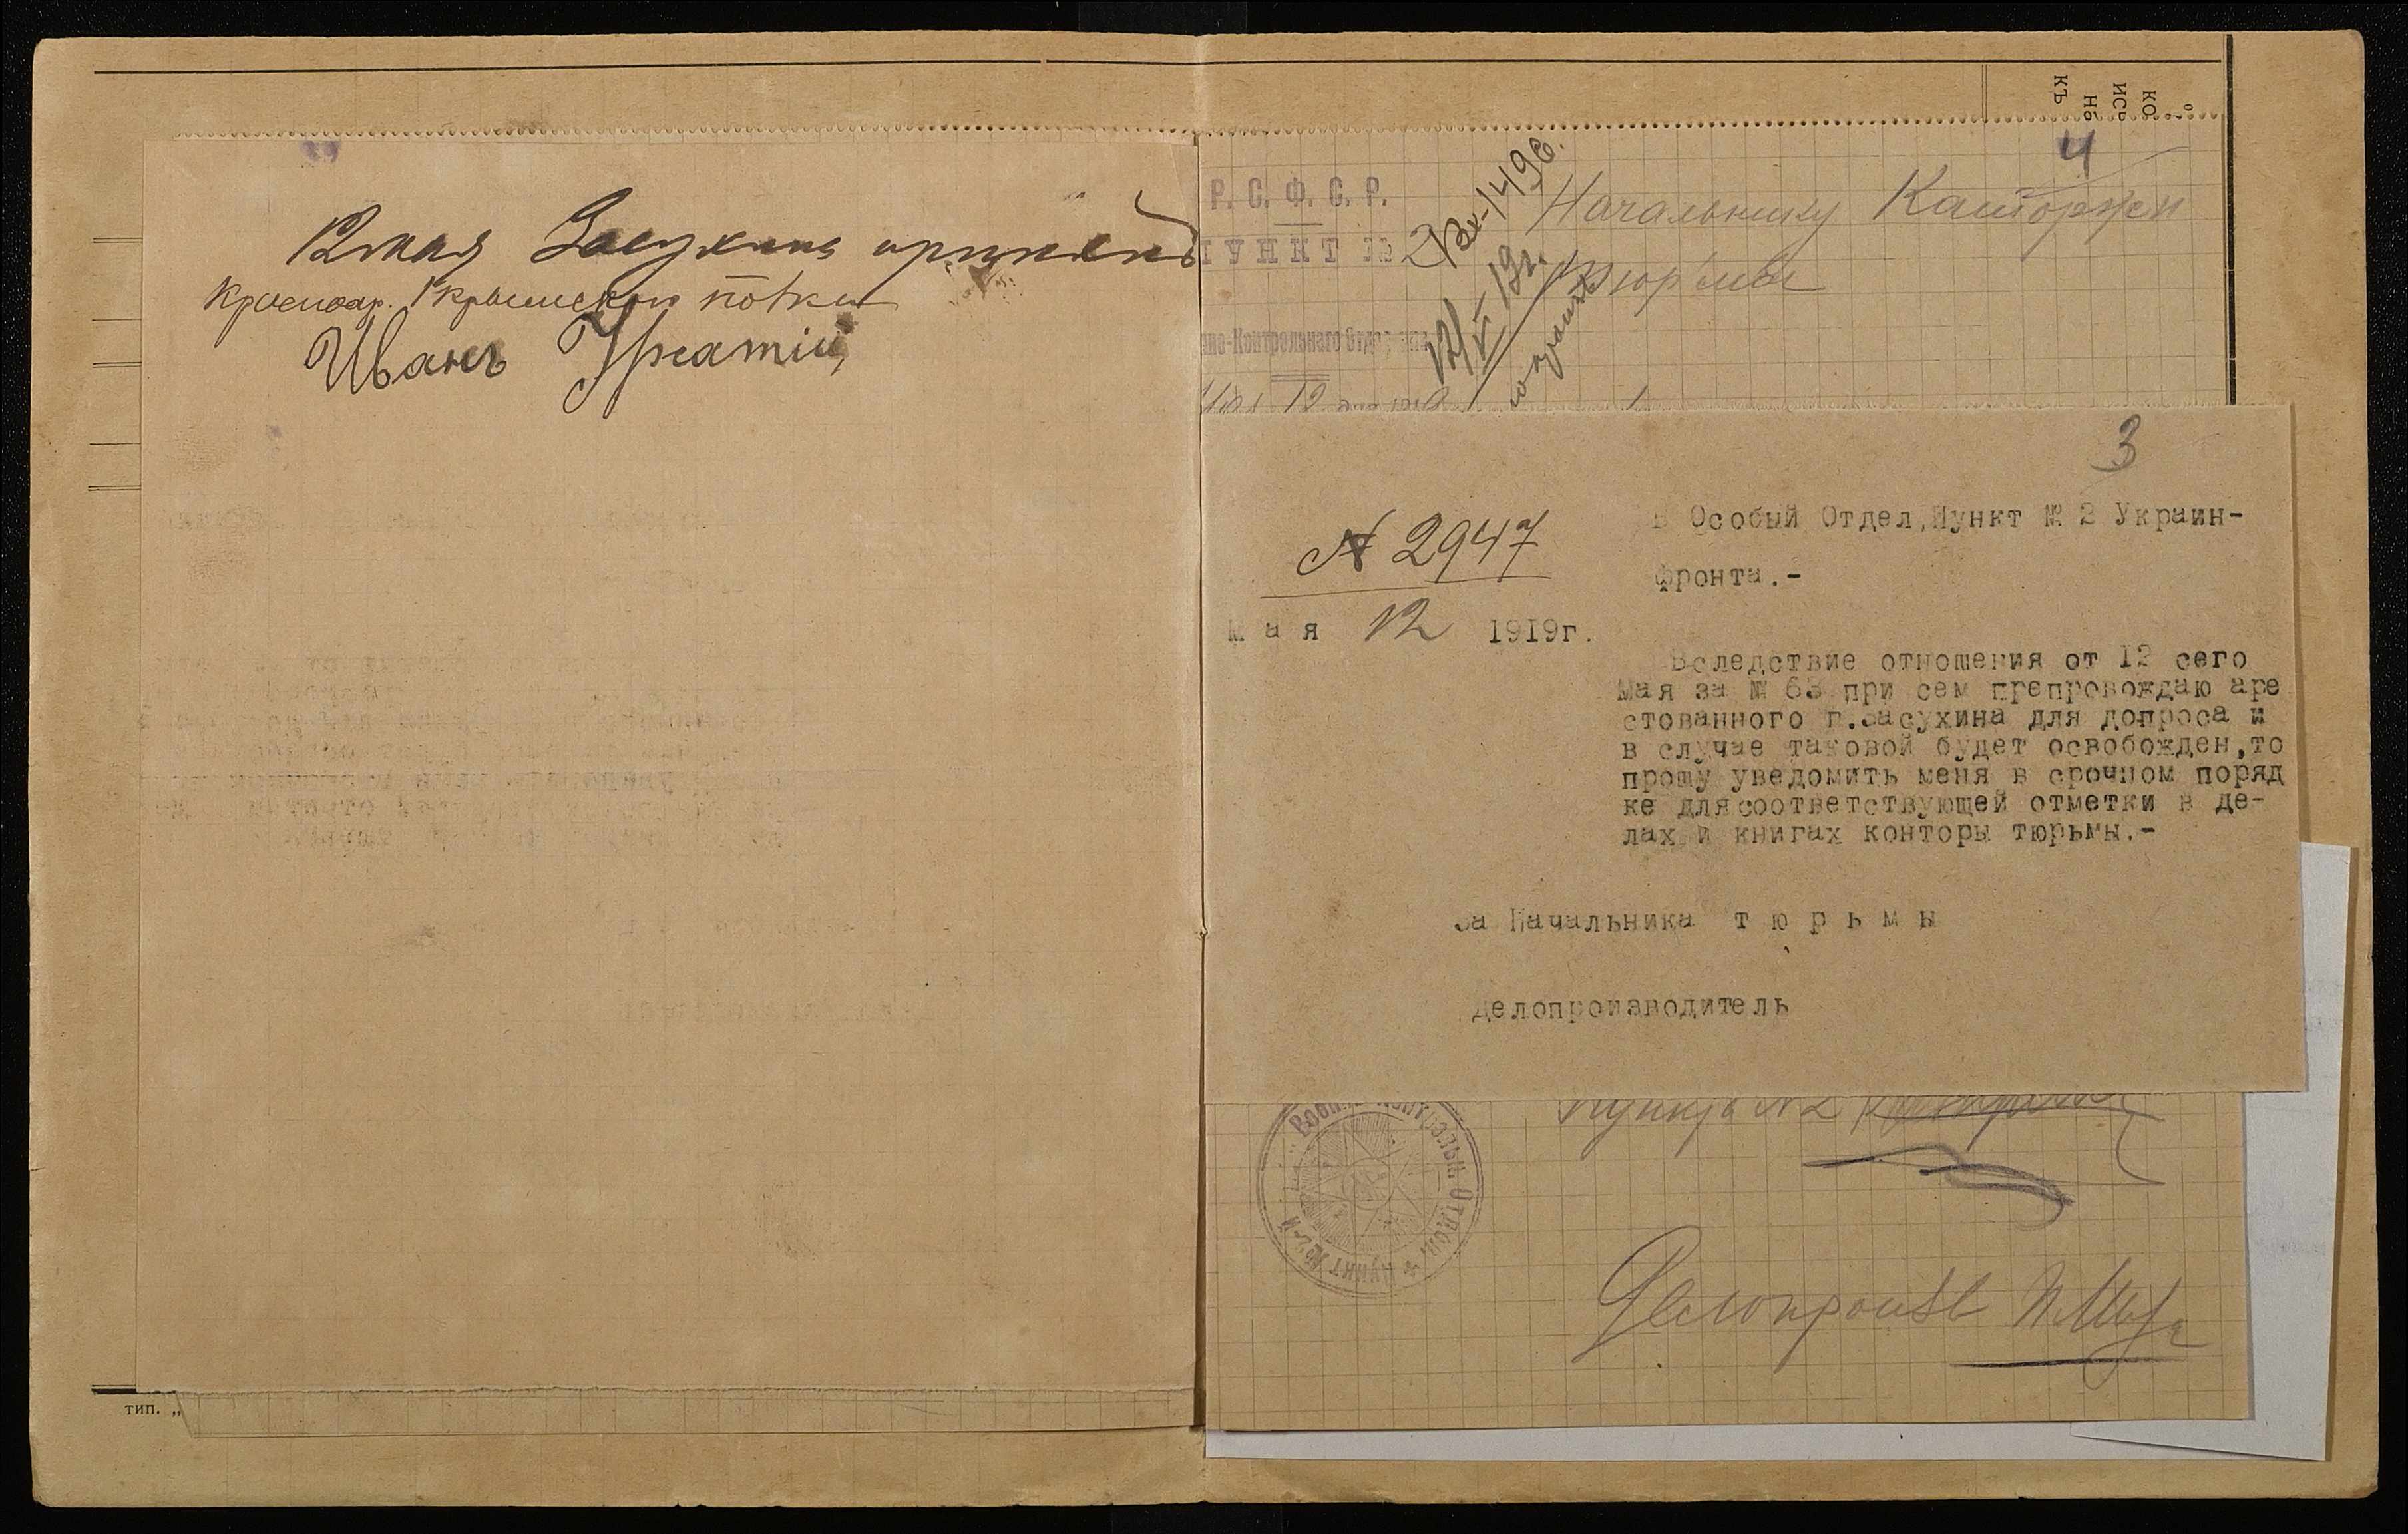 12 мая Засухина принялъ
Красноар. 1 крымского полка
Иванъ
4
Р. С. Ф. С. Р.
ПУНКТ № 2
Вх-1496.
12/V 19г.
Начальнику Каторжен
тюрьмы
но-Контрольнаго Отдел
Мая 12 дня 1919
3
N 2947
Мая 12 1919г.
В Особый Отдел,Пункт № 2 Украин-
фронта.-
Вследствие отношения от 12 сего
Мая за № 63 при сем препровождаю аре
стованного г.Засухина для допроса и
в случае таковой будет освобожден,то
прошу уведомить меня в срочном поряд
ке для соответствующей отметки в де-
лах и книгах конторы тюрьмы.-
За Начальника тюрьмы
Делопроизводитель
Пункта N 2
Военно-Контрольный Отдел * Пункт № 2-й
Делопроизв
тип. „